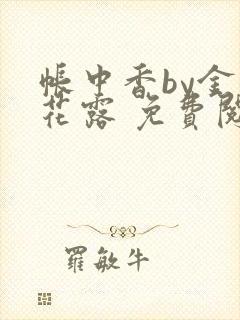 帳中香by金
花露 免費閱
羅敏牛